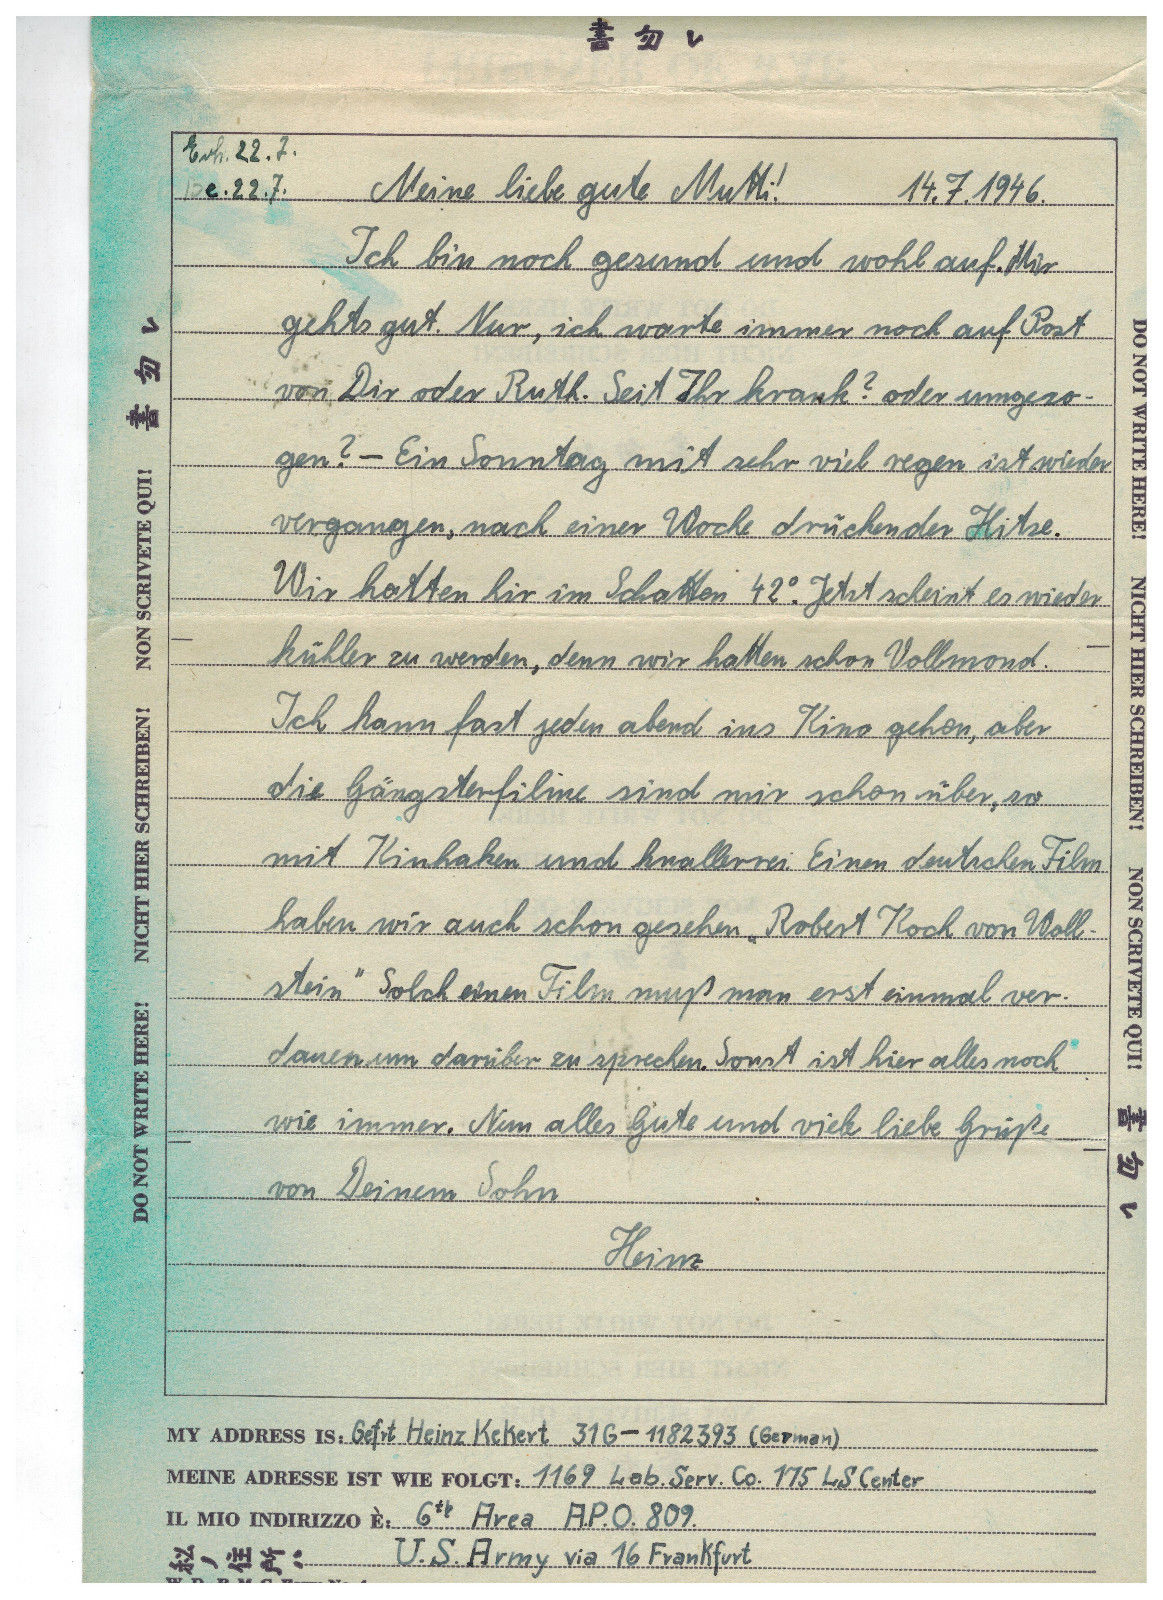 書勿レ
Erh. 22.7.
Be. 22.7.
Meine liebe gute Mutti! 14.7.1946.
Ich bin noch gesund und wohl auf. Mir
gehts gut. Nur, ich warte immer noch auf Post
von Dir oder Ruth. Seit Ihr krank? oder umgezo-
gen? – Ein Sonntag mit sehr viel regen ist wieder
vergangen, nach einer Woche drückender Hitze.
Wir hatten hir im Schatten 42°. Jetzt scheint es wieder
kühler zu werden, denn wir hatten schon Vollmond.
Ich kann fast jeden abend ins Kino gehen, aber
die Gängsterfilme sind mir schon über, so
mit Kinhaken und knallerrei. Einen deutschen Film
haben wir auch schon gesehen „Robert Koch von Woll-
stein" Solch einen Film muß man erst einmal ver-
dauen um darüber zu sprechen. Sonst ist hier alles noch
wie immer. Nun alles Gute und viele liebe Grüße
von Deinem Sohn
Heinz
DO NOT WRITE HERE! NICHT HIER SCHREIBEN! NON SCRIVETE QUI! 書勿レ
DO NOT WRITE HERE! NICHT HIER SCHREIBEN! NON SCRIVETE QUI! 書勿レ
MY ADDRESS IS: Gefrt Heinz Kekert 31G–1182393 (German)
MEINE ADRESSE IST WIE FOLGT: 1169 Lab. Serv. Co. 175 LS Center
IL MIO INDIRIZZO È: 6th Area A.P.O. 809.
私ノ住所ハ U.S. Army via 16 Frankfurt